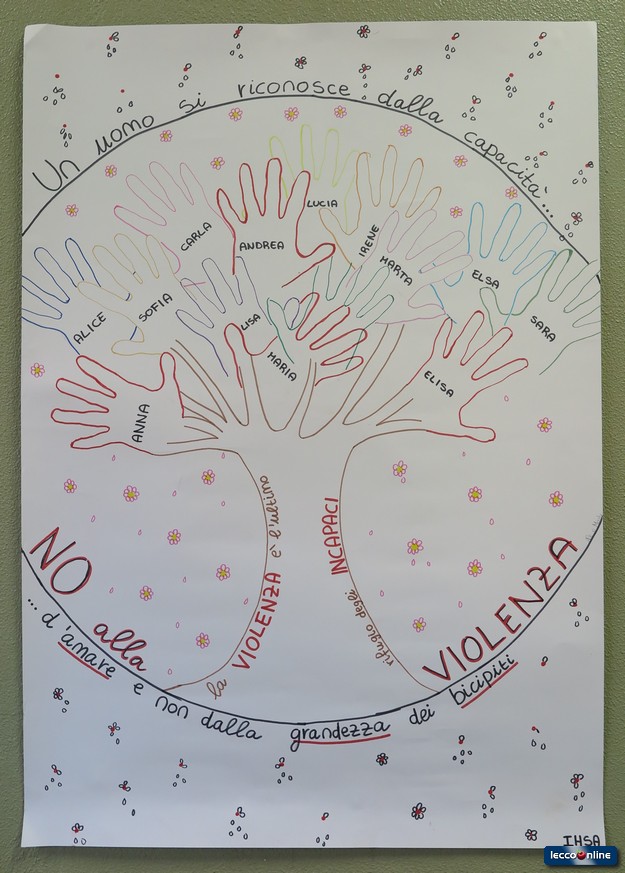 Un uomo si riconosce dalla capacità...
LUCIA
CARLA
ANDREA
IRENE
MARTA
ELSA
SARA
SOFIA
ALICE
LISA
MARIA
ELISA
ANNA
la VIOLENZA è l'ultimo
rifugio degli INCAPACI
NO alla VIOLENZA
... d'amare e non dalla grandezza dei bicipiti
IHSA
leccoonline